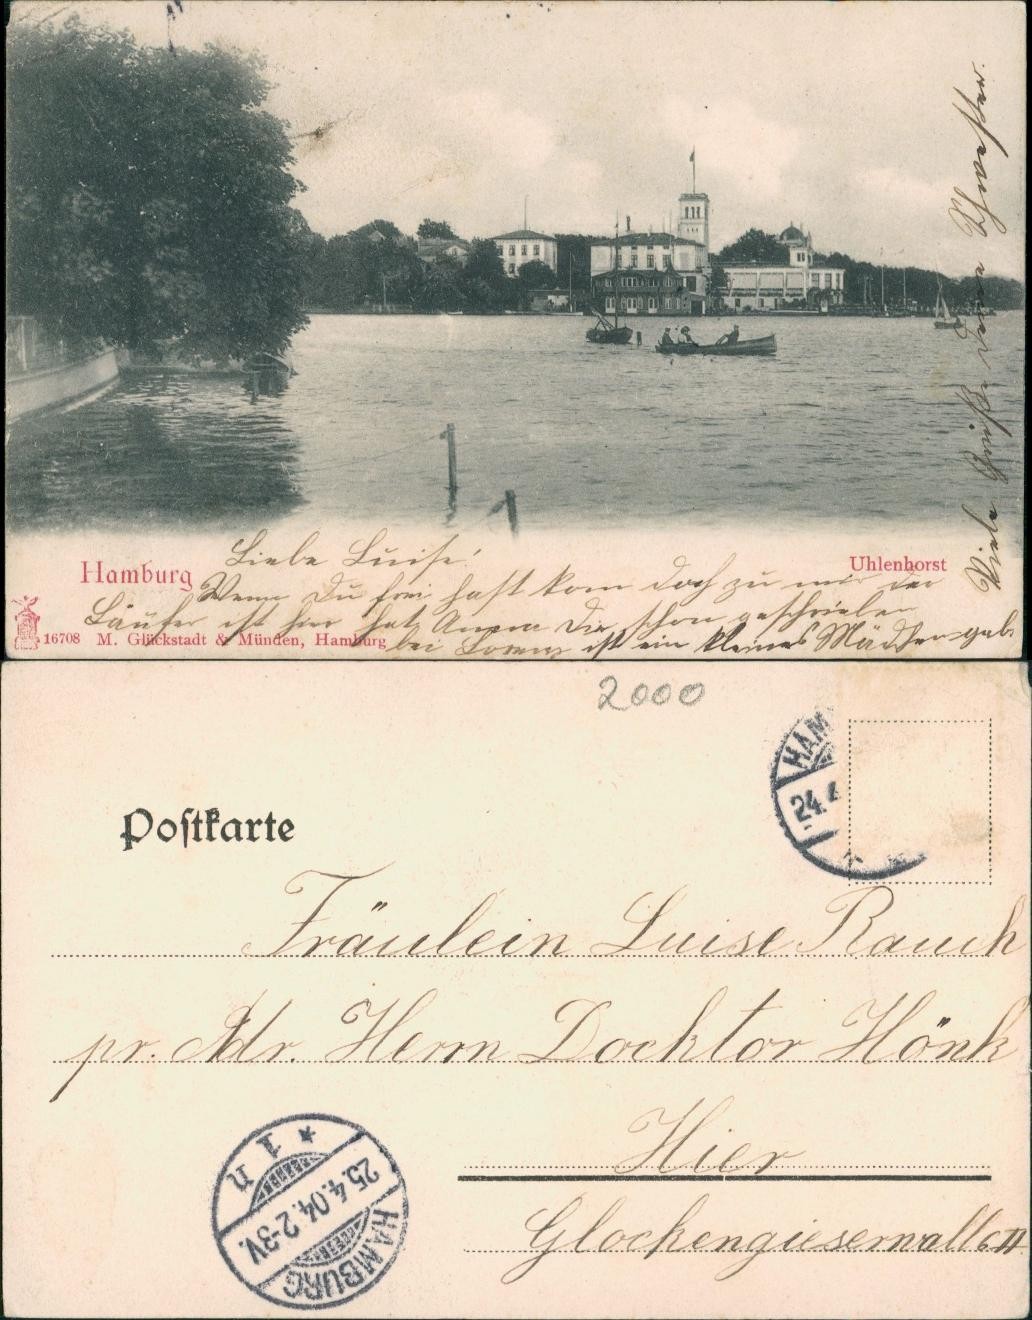 Hamburg
Uhlenhorst
Liebe Luise!
Wenn Du frei hast kom doch zu mir der
Läufer ist hier hat Anna Dir schon geschrieben
bei Lorenz ist ein kleines Mädchen
16708 M. Glückstadt & Münden, Hamburg
Viele Grüße deine Schwester
2000
Postkarte
HAM
24.4
Fräulein Luise Rauch
pr. Adr. Herrn Docktor Hönk
Hier
Glockengieserwall 6 II
HAMBURG
25.4.04.2-3V.
* 1 n